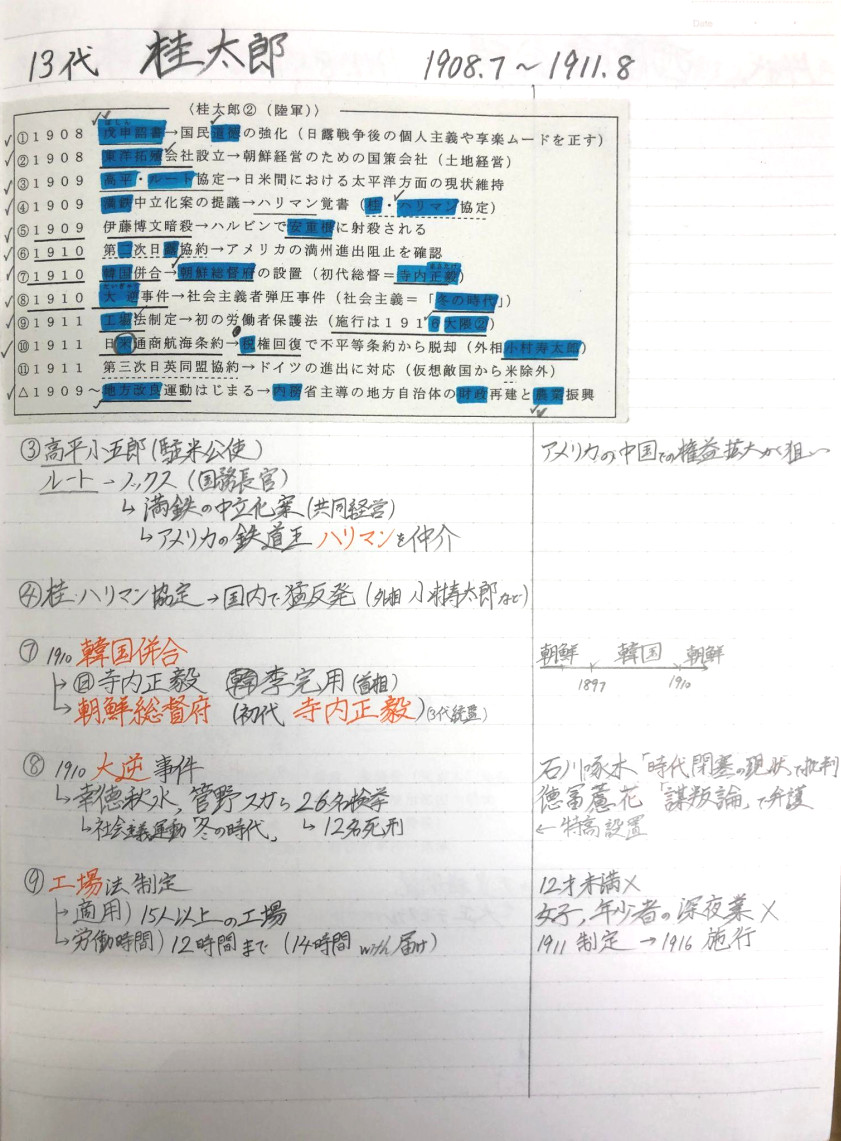 Date
13代 桂太郎 1908.7～1911.8
〈桂太郎②（陸軍）〉
①1908 戊申詔書→国民道徳の強化（日露戦争後の個人主義や享楽ムードを正す）
②1908 東洋拓殖会社設立→朝鮮経営のための国策会社（土地経営）
③1909 高平・ルート協定→日米間における太平洋方面の現状維持
④1909 満鉄中立化案の提議→ハリマン覚書（桂・ハリマン協定）
⑤1909 伊藤博文暗殺→ハルビンで安重根に射殺される
⑥1910 第二次日露協約→アメリカの満州進出阻止を確認
⑦1910 韓国併合→朝鮮総督府の設置（初代総督＝寺内正毅）
⑧1910 大逆事件→社会主義者弾圧事件（社会主義＝「冬の時代」）
⑨1911 工場法制定→初の労働者保護法（施行は1916大隈②）
⑩1911 日米通商航海条約→税権回復で不平等条約から脱却（外相小村寿太郎）
⑪1911 第三次日英同盟協約→ドイツの進出に対応（仮想敵国から米除外）
△1909～地方改良運動はじまる→内務省主導の地方自治体の財政再建と農業振興
③高平小五郎（駐米公使） アメリカの中国での権益拡大が狙い
ルート→ノックス（国務長官）
↳満鉄の中立化案（共同経営）
↳アメリカの鉄道王 ハリマンを仲介
④桂・ハリマン協定→国内で猛反発（外相 小村寿太郎など）
⑦ 1910 韓国併合 朝鮮 韓国 朝鮮
1897 1910
↳㊐寺内正毅 ㊩李完用（首相）
↳朝鮮総督府（初代 寺内正毅）（3代統監）
⑧ 1910 大逆事件 石川啄木「時代閉塞の現状」で批判
↳幸徳秋水，管野スガら26名検挙 徳冨蘆花「謀叛論」で弁護
↳社会主義運動「冬の時代」 ↳12名死刑 ←特高設置
⑨工場法制定 12才未満×
↳適用）15人以上の工場 女子，年少者の深夜業×
↳労働時間）12時間まで（14時間 with届け） 1911 制定 → 1916 施行